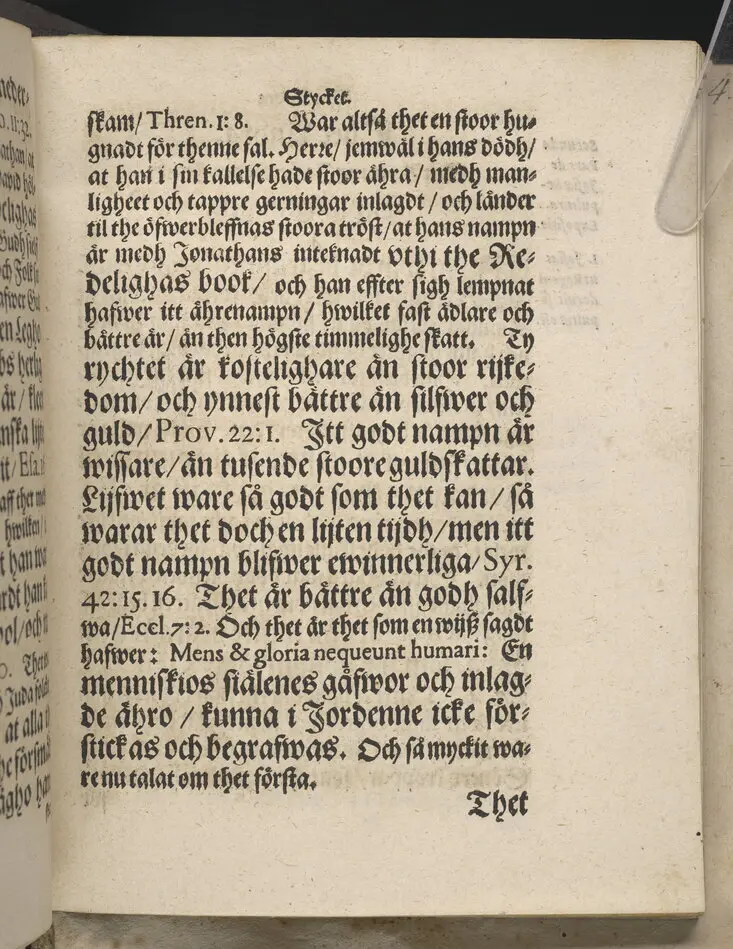 Stycket.
skam/ Thren. 1: 8. War altså thet en stoor hu-
gnadt för thenne sal. Herre/ jemwäl i hans dödh/
at han i sin kallelse hade stoor ähra/ medh man-
ligheet och tappre gerningar inlagdt/ och länder
til the öfwerbleffnas stoora tröst/ at hans nampn
är medh Jonathans inteknadt vthi the Re-
delighas book/ och han effter sigh lempnat
hafwer itt ährenampn/ hwilket fast ädlare och
bättre är/ än then högste timmelighe skatt. Ty
rychtet är kostelighare än stoor rijke-
dom/ och ynnest bättre än silfwer och
guld/ Prov. 22: 1. Itt godt nampn är
wissare/ än tusende stoore guldskattar.
Lijfwet ware så godt som thet kan/ så
warar thet doch en lijten tijdh/ men itt
godt nampn blifwer ewinnerliga/ Syr.
42: 15. 16. Thet är bättre än godh salf-
wa/ Eccl. 7: 2. Och thet är thet som en wijß sagdt
hafwer: Mens & gloria nequeunt humari: En
menniskios siälenes gåfwor och inlag-
de ähro/ kunna i Jordenne icke för-
stickas och begrafwas. Och så myckit wa-
re nu talat om thet första.
Thet